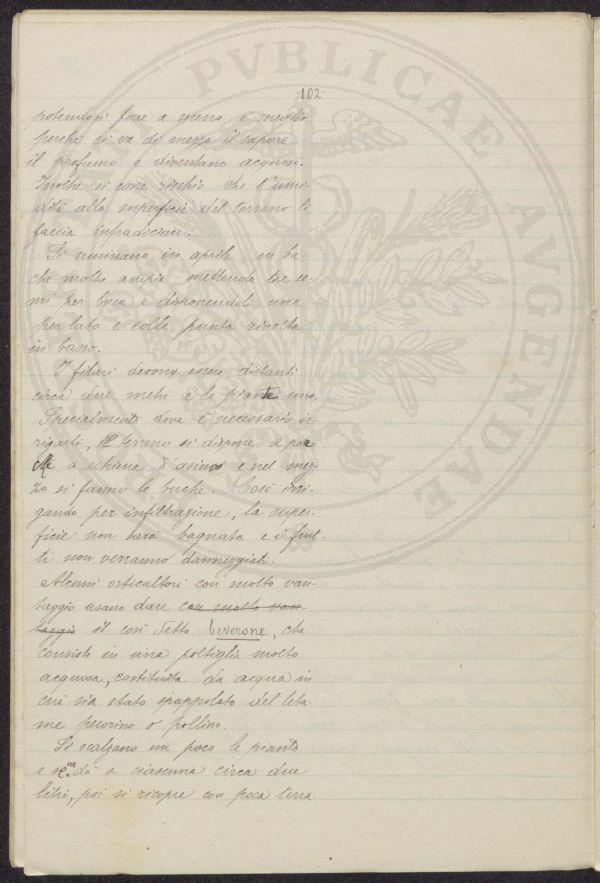 PVBLICAE AVGENDAE
102
potendosi fare a meno è meglio
perchè ci va di mezzo il sapore
il profumo e diventano acquosi.
Inoltre si corre rischio che l'umi-
dità alla superficie del terreno li
faccia infradiciare.
Si seminano in aprile in bu-
che molto ampie mettendo tre se-
mi per buca e disponendoli uno
per lato e colla punta rivolta
in basso.
I filari devono essere distanti
circa due metri e le piante uno.
Specialmente dove è necessario ir-
rigarli, il terreno si dispone a por-
che a schiena d'asino e nel mez-
zo si fanno le buche. Così irri-
gando per infiltrazione, la super-
ficie non sarà bagnata e i frut-
ti non verranno danneggiati.
Alcuni orticultori con molto van-
taggio usano dare con molto van-
taggio il così detto beverone, che
consiste in una poltiglia molto
acquosa, costituita da acqua in
cui sia stato spappolato del leta-
me pecorino o pollino.
Si scalzano un poco le piante
e se ne dà a ciascuna circa due
litri, poi si ricopre con poca terra